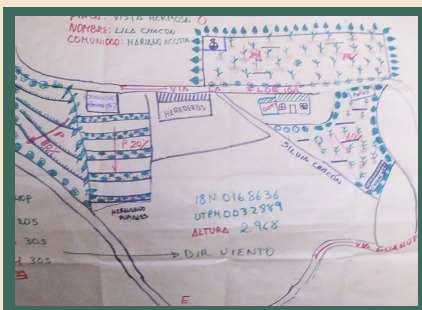 FINCA: VISTA HERMOSA
NOMBRE: LILA CHACON
COMUNIDAD: MARIANO ACOSTA
VIA LA FLORIDA
HEREDEROS
SILVIA CHACON
P 20%
HERMANO
18N 0168636
UTPM 0032889
ALTURA 2.968
DIR VIENTO
VIA
E
20S
30S
30S